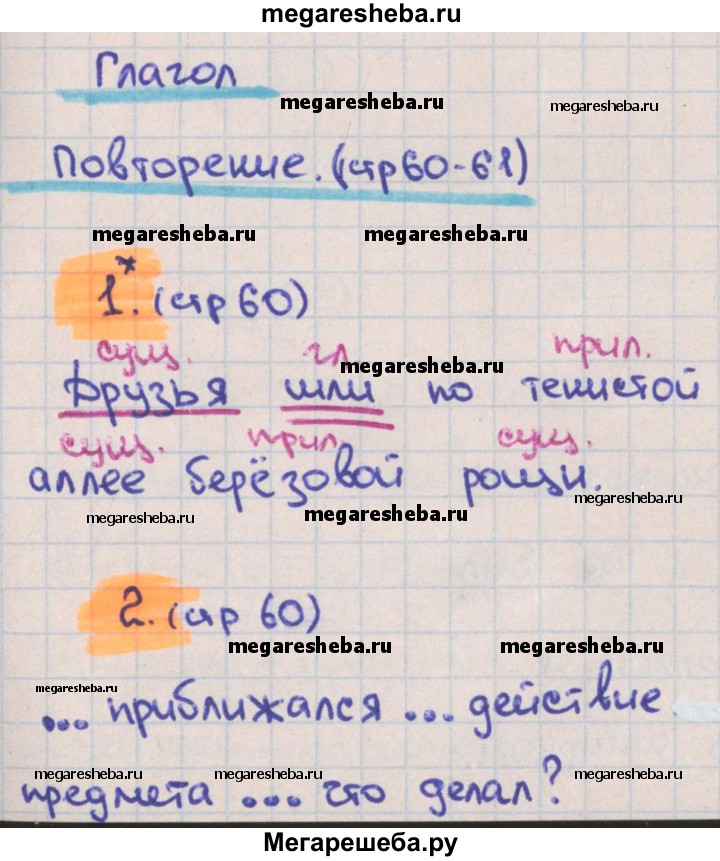 megaresheba.ru
Глагол
megaresheba.ru megaresheba.ru
Повторение. (стр 60-61)
megaresheba.ru megaresheba.ru
1.* (стр 60)
сущ. гл. прил.
megaresheba.ru
Друзья шли по тенистой
сущ. прил. сущ.
аллее берёзовой рощи.
megaresheba.ru megaresheba.ru megaresheba.ru
2. (стр 60)
megaresheba.ru megaresheba.ru
megaresheba.ru
... приближался ... действие
megaresheba.ru megaresheba.ru megaresheba.ru
предмета ... что делал?
Мегарешеба.ру